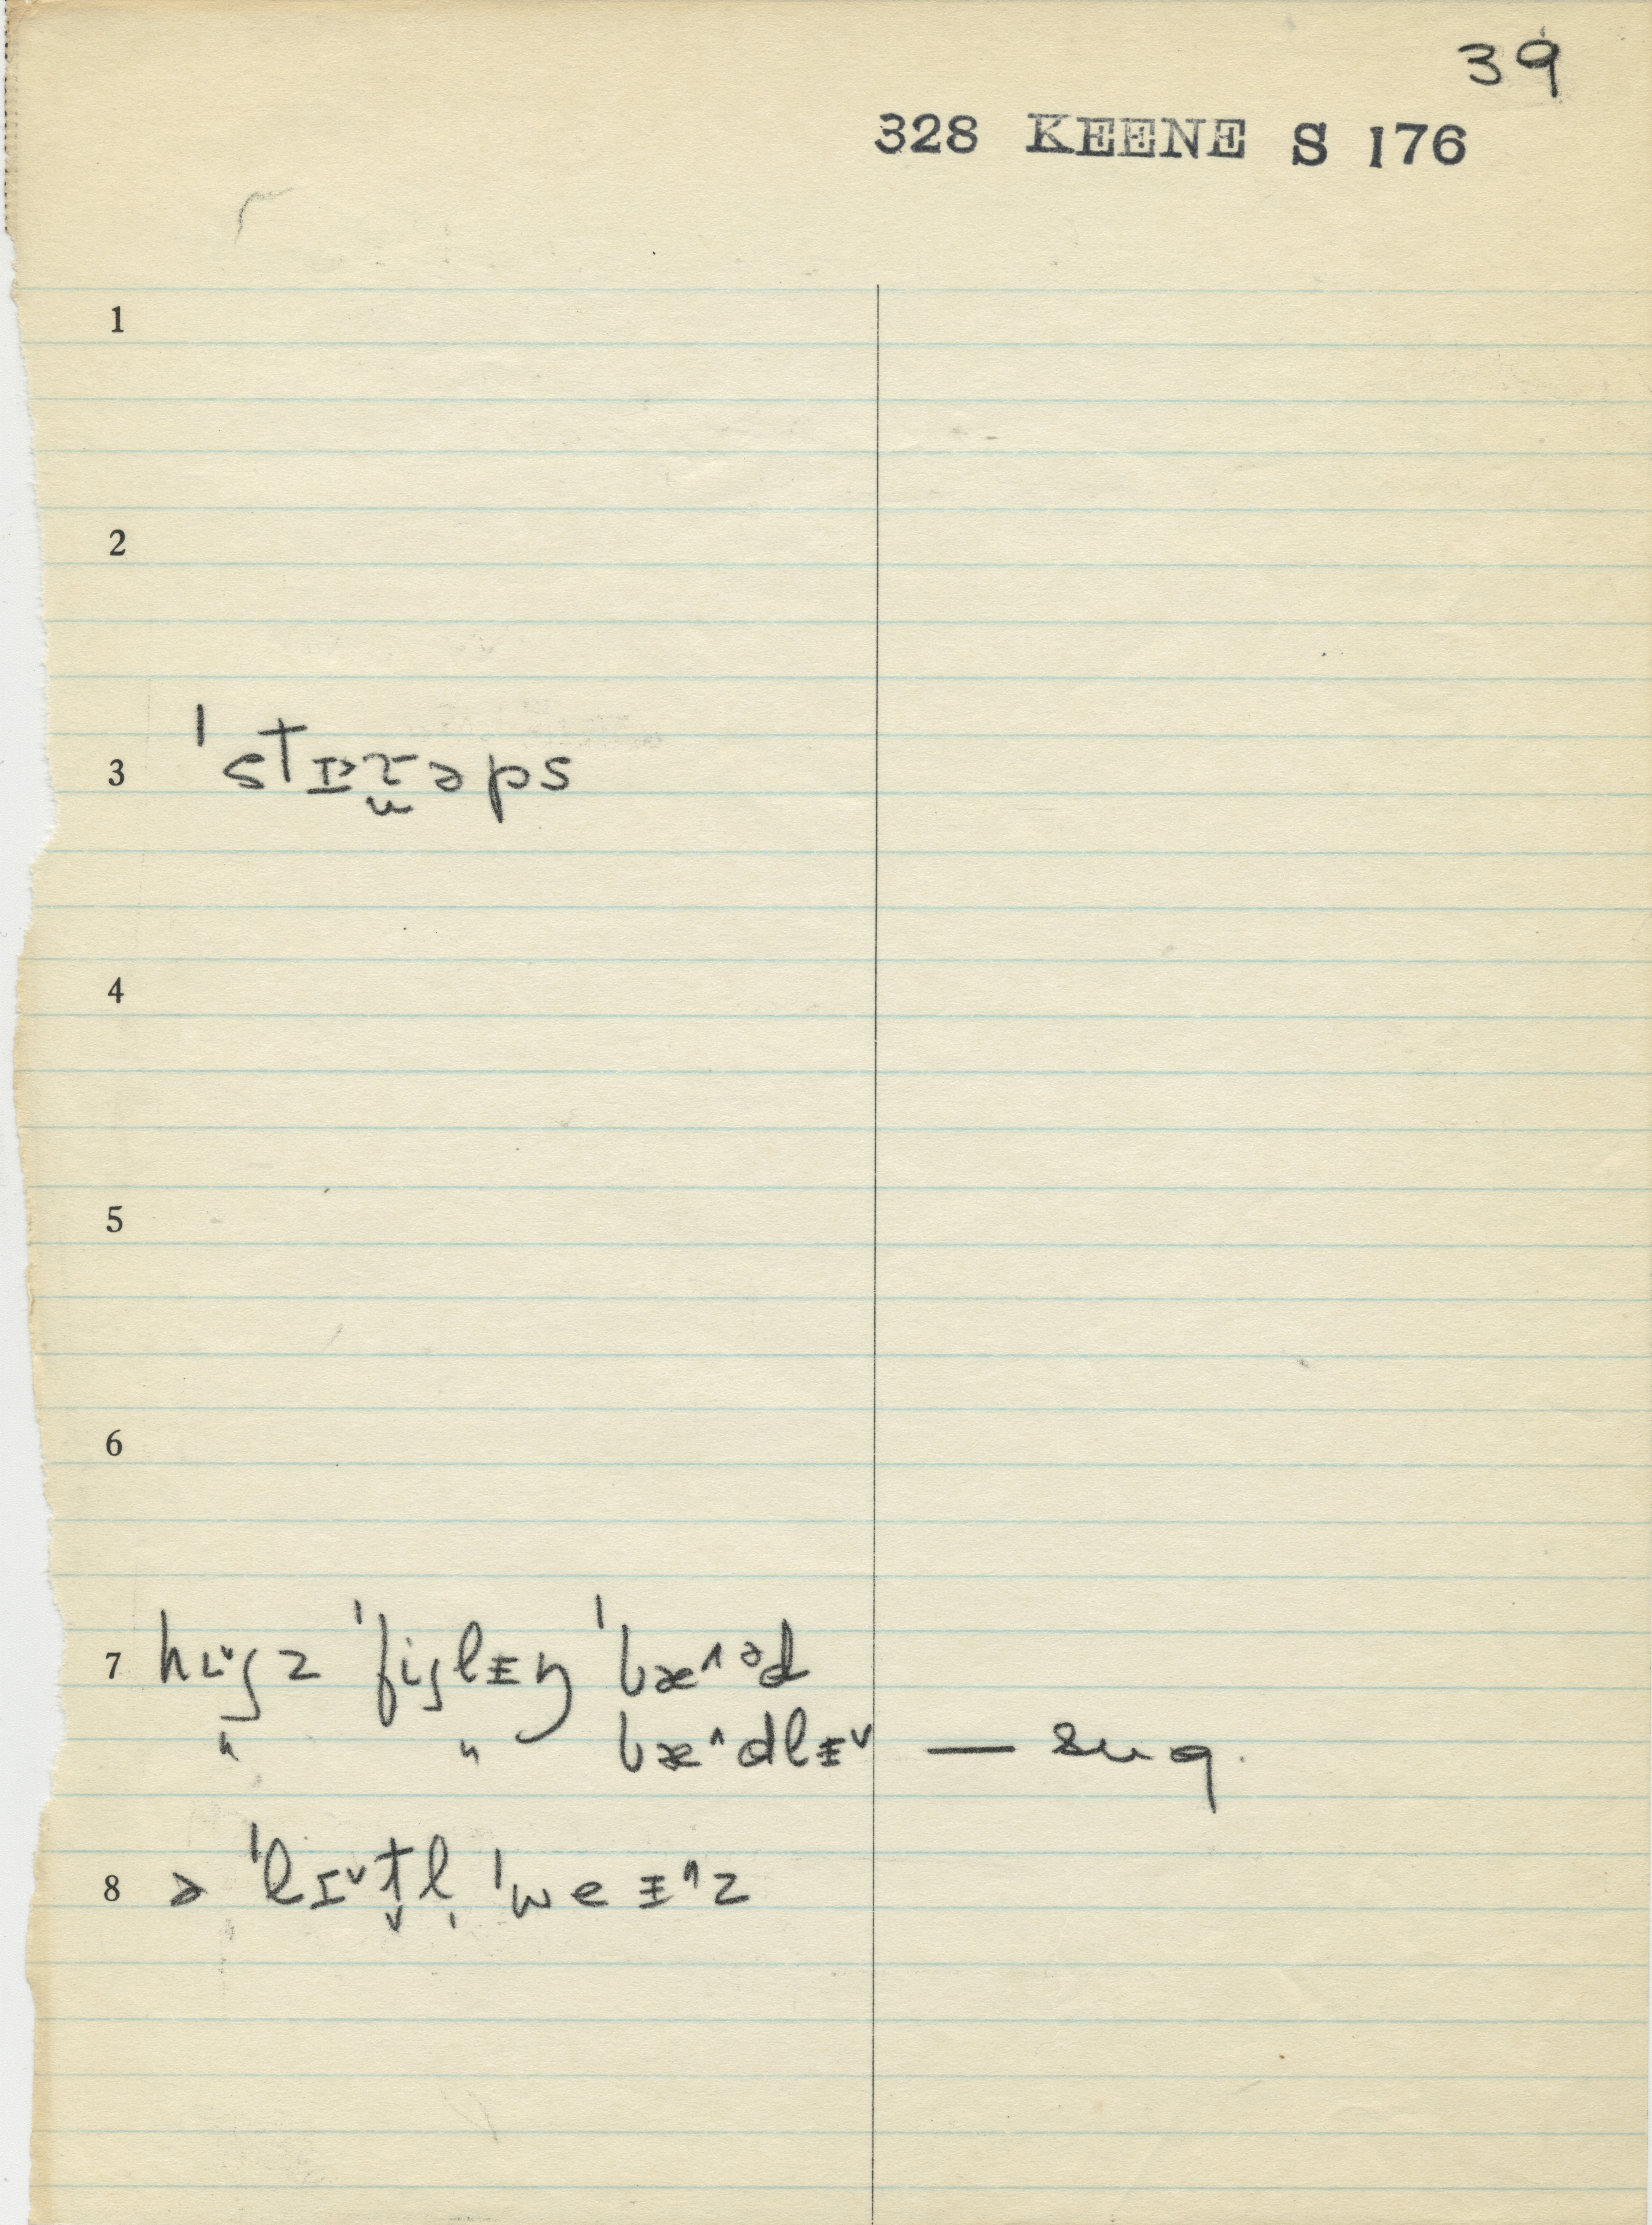 39
328 KEENE S 176
1
2
3 ˈstɪɚɹ̯əps
4
5
6
7 hi̬ʃz ˈfiʃlᵻŋ ˈbæ^ᵊd
" " bæ^dlᵻ˅ — sug.
8 ə ˈlɪ˅t̬l̩ ˈweᵻ^z